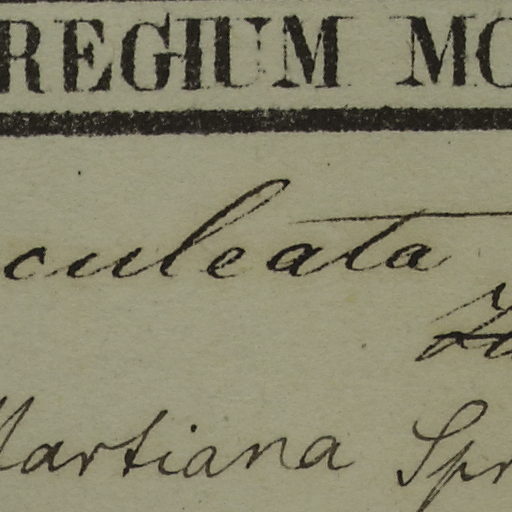 REGIUM MO
culeata
Martiana Spr